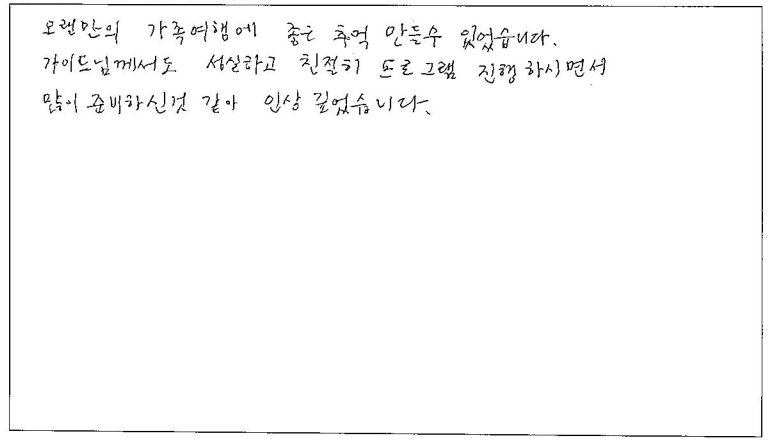 오랜만의 가족여행에 좋은 추억 만들수 있었습니다.
가이드님께서도 성실하고 친절히 프로그램 진행하시면서
많이 준비하신것 같아 인상 깊었습니다.